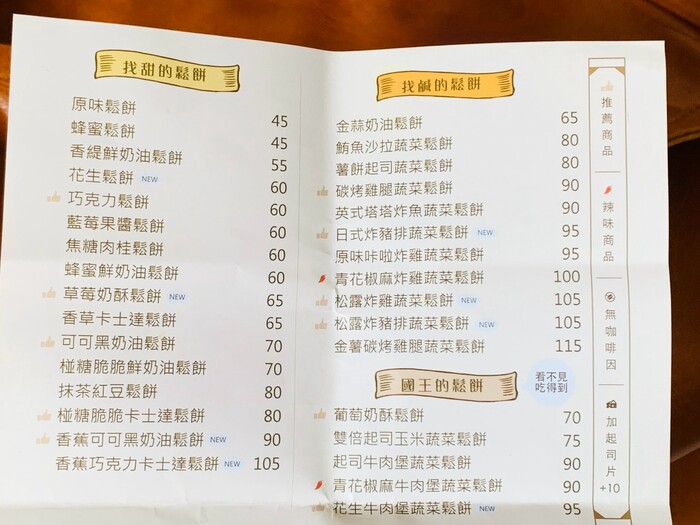 找甜的鬆餅
原味鬆餅 45
蜂蜜鬆餅 45
香緹鮮奶油鬆餅 55
花生鬆餅 NEW 60
巧克力鬆餅 60
藍莓果醬鬆餅 60
焦糖肉桂鬆餅 60
蜂蜜鮮奶油鬆餅 60
草莓奶酥鬆餅 NEW 65
香草卡士達鬆餅 65
可可黑奶油鬆餅 70
椪糖脆脆鮮奶油鬆餅 70
抹茶紅豆鬆餅 80
椪糖脆脆卡士達鬆餅 80
香蕉可可黑奶油鬆餅 NEW 90
香蕉巧克力卡士達鬆餅 NEW 105
找鹹的鬆餅
金蒜奶油鬆餅 65
鮪魚沙拉蔬菜鬆餅 80
薯餅起司蔬菜鬆餅 80
碳烤雞腿蔬菜鬆餅 90
英式塔塔炸魚蔬菜鬆餅 90
日式炸豬排蔬菜鬆餅 NEW 95
原味咔啦炸雞蔬菜鬆餅 95
青花椒麻炸雞蔬菜鬆餅 100
松露炸雞蔬菜鬆餅 NEW 105
松露炸豬排蔬菜鬆餅 NEW 105
金薯碳烤雞腿蔬菜鬆餅 115
國王的鬆餅
看不見
吃得到
葡萄奶酥鬆餅 70
雙倍起司玉米蔬菜鬆餅 75
起司牛肉堡蔬菜鬆餅 90
青花椒麻牛肉堡蔬菜鬆餅 90
花生牛肉堡蔬菜鬆餅 NEW 95
推薦商品
辣味商品
無咖啡因
加起司片+10